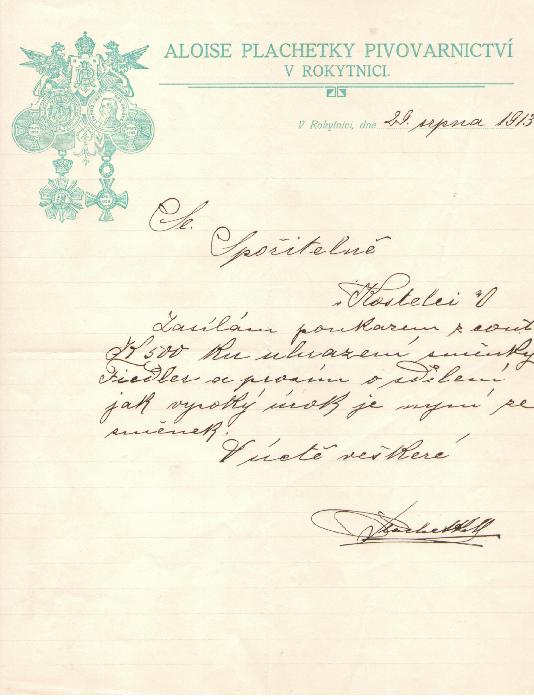 ALOISE PLACHETKY PIVOVARNICTVÍ
V ROKYTNICI.
V Rokytnici, dne 29. srpna 1913
Sl.
Spořitelně
v Kostelci ⁿ/O
Zasílám poukazem z cont
K 500 ku uhrazení směnky
Fiedler a prosím o sdělení
jak vysoký úrok je nyní ze
směnek.
V úctě veškeré
Plachetka